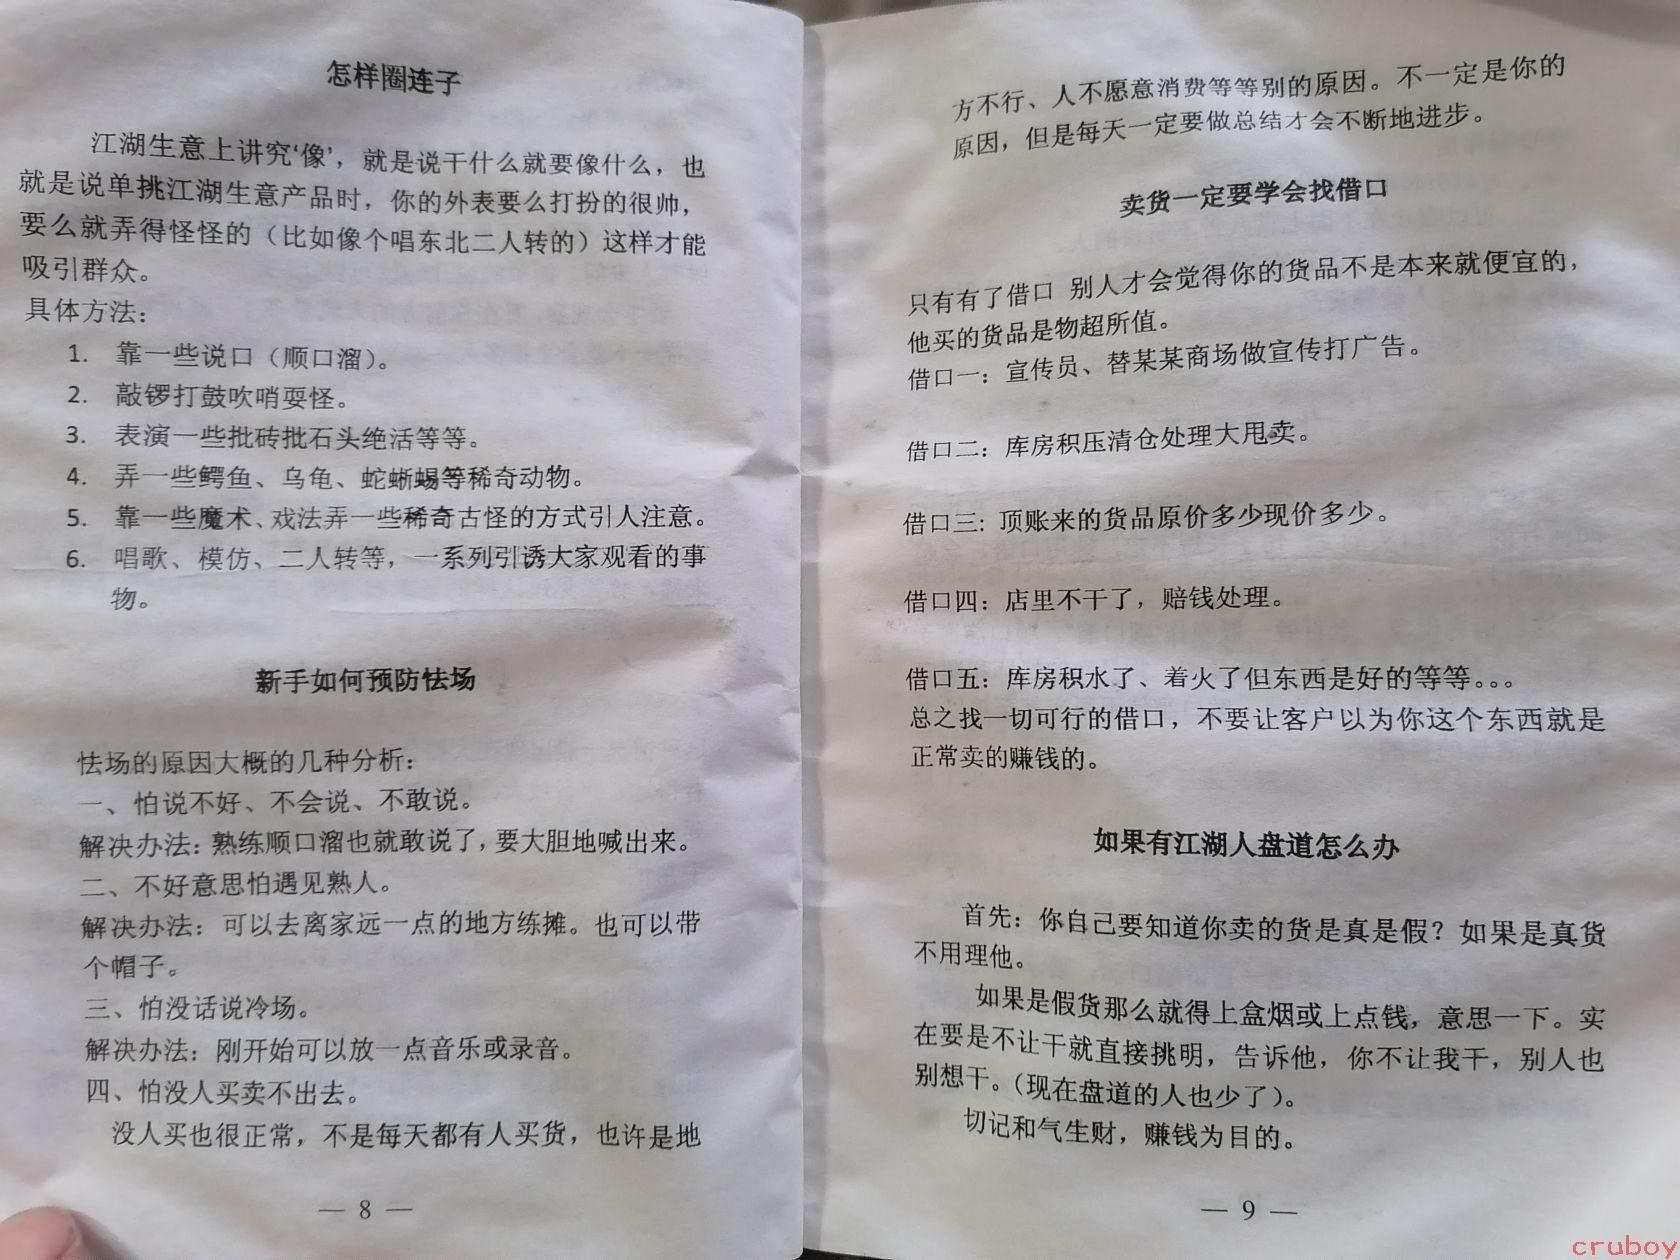 怎样圈连子
江湖生意上讲究‘像’，就是说干什么就要像什么，也
就是说单挑江湖生意产品时，你的外表要么打扮的很帅，
要么就弄得怪怪的（比如像个唱东北二人转的）这样才能
吸引群众。
具体方法：
1. 靠一些说口（顺口溜）。
2. 敲锣打鼓吹哨耍怪。
3. 表演一些批砖批石头绝活等等。
4. 弄一些鳄鱼、乌龟、蛇蜥蜴等稀奇动物。
5. 靠一些魔术、戏法弄一些稀奇古怪的方式引人注意。
6. 唱歌、模仿、二人转等，一系列引诱大家观看的事
物。
新手如何预防怯场
怯场的原因大概的几种分析：
一、怕说不好、不会说、不敢说。
解决办法：熟练顺口溜也就敢说了，要大胆地喊出来。
二、不好意思怕遇见熟人。
解决办法：可以去离家远一点的地方练摊。也可以带
个帽子。
三、怕没话说冷场。
解决办法：刚开始可以放一点音乐或录音。
四、怕没人买卖不出去。
没人买也很正常，不是每天都有人买货，也许是地
— 8 —
方不行、人不愿意消费等等别的原因。不一定是你的
原因，但是每天一定要做总结才会不断地进步。
卖货一定要学会找借口
只有有了借口 别人才会觉得你的货品不是本来就便宜的，
他买的货品是物超所值。
借口一：宣传员、替某某商场做宣传打广告。
借口二：库房积压清仓处理大甩卖。
借口三：顶账来的货品原价多少现价多少。
借口四：店里不干了，赔钱处理。
借口五：库房积水了、着火了但东西是好的等等。。。
总之找一切可行的借口，不要让客户以为你这个东西就是
正常卖的赚钱的。
如果有江湖人盘道怎么办
首先：你自己要知道你卖的货是真是假？如果是真货
不用理他。
如果是假货那么就得上盒烟或上点钱，意思一下。实
在要是不让干就直接挑明，告诉他，你不让我干，别人也
别想干。（现在盘道的人也少了）。
切记和气生财，赚钱为目的。
— 9 —
cruboy